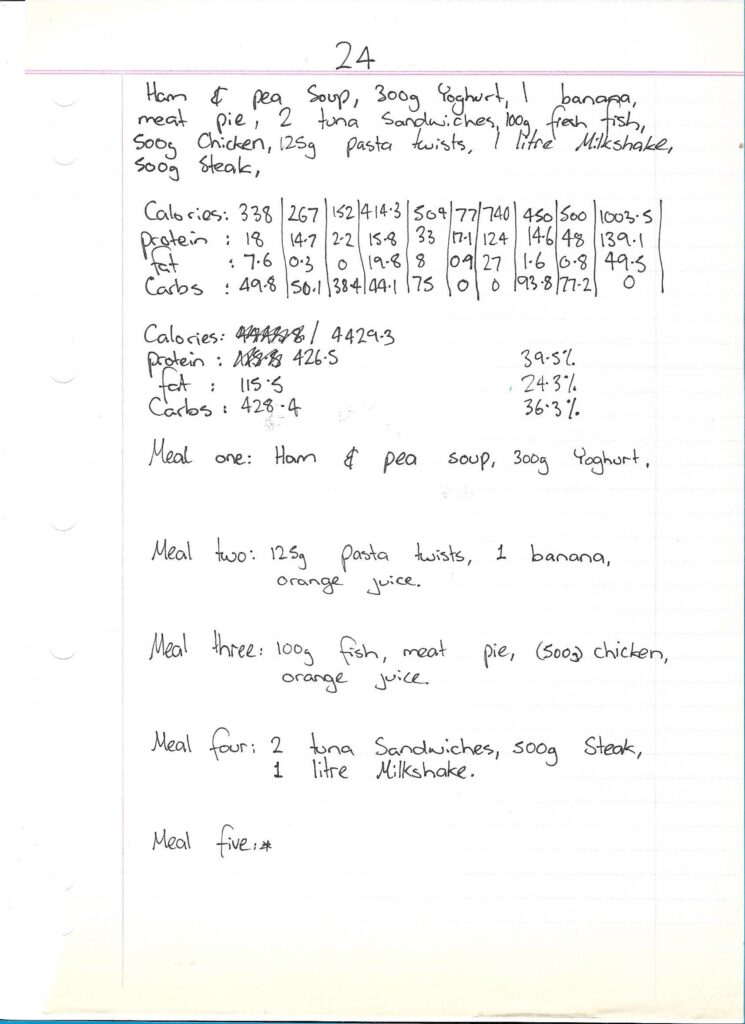 24
Ham & pea Soup, 300g Yoghurt, 1 banana,
meat pie, 2 tuna Sandwiches, 100g fresh fish,
500g Chicken, 125g pasta twists, 1 litre Milkshake,
500g Steak,
Calories: 338 | 267 | 152 | 414.3 | 509 | 77 | 740 | 450 | 500 | 1003.5 |
protein : 18 | 14.7 | 2.2 | 15.8 | 33 | 17.1 | 124 | 14.6 | 48 | 139.1
fat : 7.6 | 0.3 | 0 | 19.8 | 8 | 0.9 | 27 | 1.6 | 0.8 | 49.5
Carbs : 49.8 | 50.1 | 38.4 | 44.1 | 75 | 0 | 0 | 93.8 | 77.2 | 0
Calories: / 4429.3
protein : 426.5 39.5%
fat : 115.5 24.3%
Carbs : 428.4 36.3%
Meal one: Ham & pea soup, 300g Yoghurt.
Meal two: 125g pasta twists, 1 banana,
orange juice.
Meal three: 100g fish, meat pie, (500g) chicken,
orange juice.
Meal four: 2 tuna Sandwiches, 500g Steak,
1 litre Milkshake.
Meal five: *